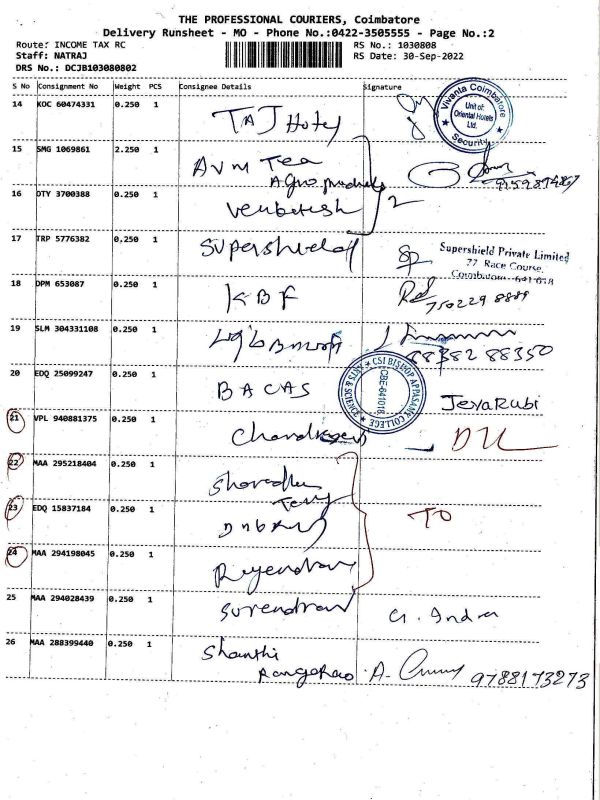 THE PROFESSIONAL COURIERS, Coimbatore
Delivery Runsheet - MO - Phone No.:0422-3505555 - Page No.:2
Route: INCOME TAX RC
RS No.: 1030808
Staff: NATRAJ
RS Date: 30-Sep-2022
DRS No.: DCJB103080802
S No Consignment No Weight PCS Consignee Details Signature
14 KOC 60474331 0.250 1 TAJ Hotel
Vivanta Coimbatore
Unit of:
Oriental Hotels
Ltd.
Security
15 SMG 1069861 2.250 1 AVM Tea
Agro products
16 DTY 3700388 0.250 1 Venkatesh 2
17 TRP 5776382 0.250 1 Supershield
Supershield Private Limited
77 Race Course,
Coimbatore - 641 018
18 DPM 653087 0.250 1 KBF
750229 8889
19 SLM 304331108 0.250 1
88382 88350
20 EDQ 25099247 0.250 1 BACAS JevaRubi
CSI BISHOP APPASAMY COLLEGE
ARTS & SCIENCE
CBE-641018
21 VPL 940881375 0.250 1 DL
22 MAA 295218404 0.250 1
23 EDQ 15837184 0.250 1 TO
24 MAA 294198045 0.250 1 Rajendran
25 MAA 294028439 0.250 1 Surendran G. Indra
26 MAA 288399440 0.250 1 Shanthi
RangaRao A. 9788173273